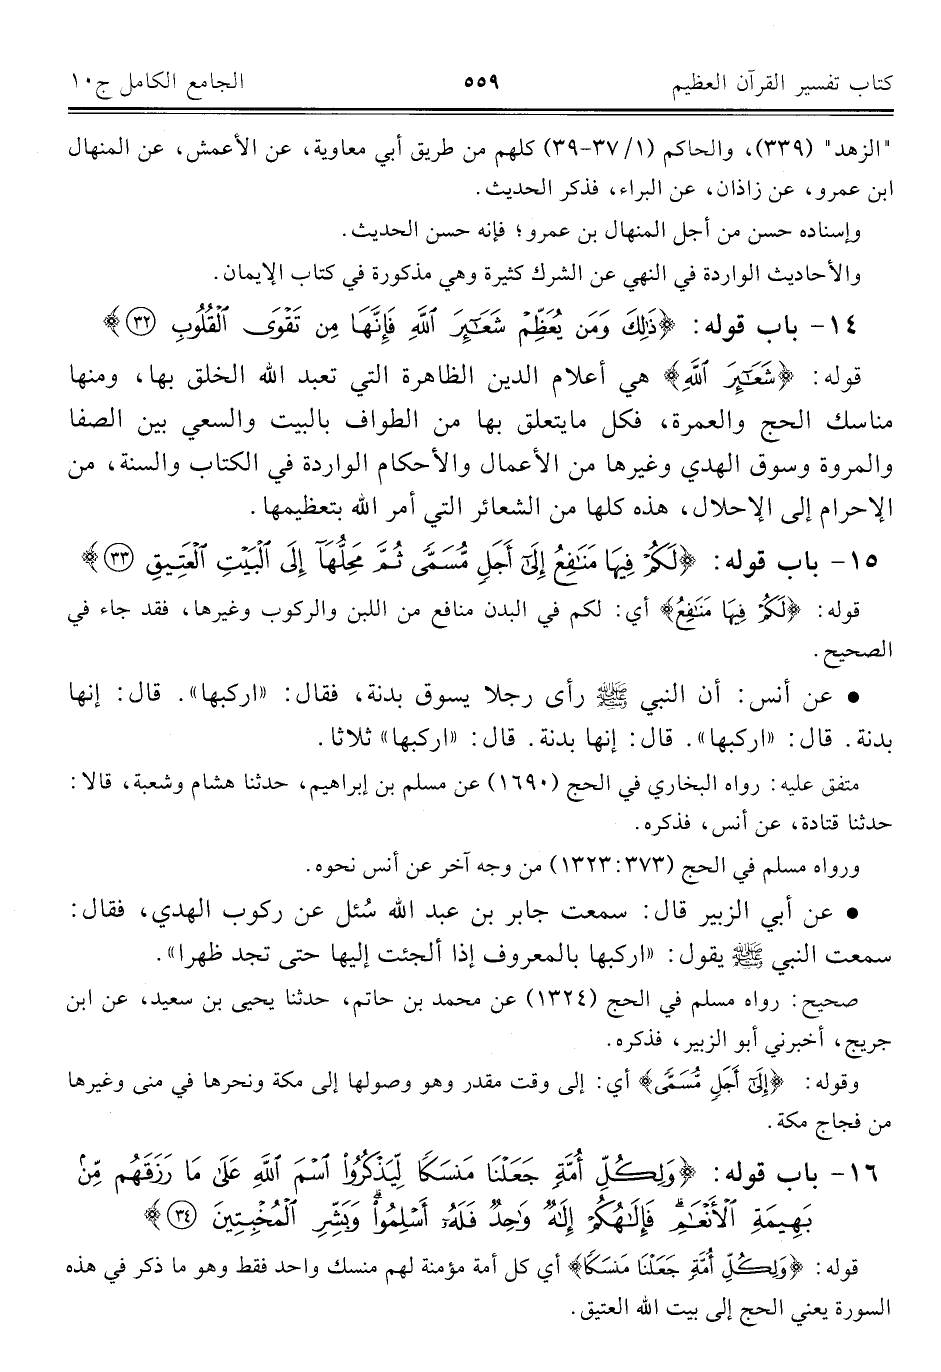 كتاب تفسير القرآن العظيم ٥٥٩ الجامع الكامل ج١٠
"الزهد" (٣٣٩)، والحاكم (١/ ٣٧-٣٩) كلهم من طريق أبي معاوية، عن الأعمش، عن المنهال
ابن عمرو، عن زاذان، عن البراء، فذكر الحديث.
وإسناده حسن من أجل المنهال بن عمرو؛ فإنه حسن الحديث.
والأحاديث الواردة في النهي عن الشرك كثيرة وهي مذكورة في كتاب الإيمان.
١٤- باب قوله: ﴿ذَٰلِكَ وَمَن يُعَظِّمْ شَعَٰٓئِرَ ٱللَّهِ فَإِنَّهَا مِن تَقْوَى ٱلْقُلُوبِ ٣٢﴾
قوله: ﴿شَعَٰٓئِرَ ٱللَّهِ﴾ هي أعلام الدين الظاهرة التي تعبد الله الخلق بها، ومنها
مناسك الحج والعمرة، فكل مايتعلق بها من الطواف بالبيت والسعي بين الصفا
والمروة وسوق الهدي وغيرها من الأعمال والأحكام الواردة في الكتاب والسنة، من
الإحرام إلى الإحلال، هذه كلها من الشعائر التي أمر الله بتعظيمها.
١٥- باب قوله: ﴿لَكُمْ فِيهَا مَنَٰفِعُ إِلَىٰٓ أَجَلٍ مُّسَمًّى ثُمَّ مَحِلُّهَآ إِلَى ٱلْبَيْتِ ٱلْعَتِيقِ ٣٣﴾
قوله: ﴿لَكُمْ فِيهَا مَنَٰفِعُ﴾ أي: لكم في البدن منافع من اللبن والركوب وغيرها، فقد جاء في
الصحيح.
• عن أنس: أن النبي ﷺ رأى رجلا يسوق بدنة، فقال: «اركبها». قال: إنها
بدنة. قال: «اركبها». قال: إنها بدنة. قال: «اركبها» ثلاثا.
متفق عليه: رواه البخاري في الحج (١٦٩٠) عن مسلم بن إبراهيم، حدثنا هشام وشعبة، قالا:
حدثنا قتادة، عن أنس، فذكره.
ورواه مسلم في الحج (١٣٢٣:٣٧٣) من وجه آخر عن أنس نحوه.
• عن أبي الزبير قال: سمعت جابر بن عبد الله سُئل عن ركوب الهدي، فقال:
سمعت النبي ﷺ يقول: «اركبها بالمعروف إذا ألجئت إليها حتى تجد ظهرا».
صحيح: رواه مسلم في الحج (١٣٢٤) عن محمد بن حاتم، حدثنا يحيى بن سعيد، عن ابن
جريج، أخبرني أبو الزبير، فذكره.
وقوله: ﴿إِلَىٰٓ أَجَلٍ مُّسَمًّى﴾ أي: إلى وقت مقدر وهو وصولها إلى مكة ونحرها في منى وغيرها
من فجاج مكة.
١٦- باب قوله: ﴿وَلِكُلِّ أُمَّةٍ جَعَلْنَا مَنسَكًا لِّيَذْكُرُوا۟ ٱسْمَ ٱللَّهِ عَلَىٰ مَا رَزَقَهُم مِّنۢ
بَهِيمَةِ ٱلْأَنْعَٰمِ ۗ فَإِلَٰهُكُمْ إِلَٰهٌ وَٰحِدٌ فَلَهُۥٓ أَسْلِمُوا۟ ۗ وَبَشِّرِ ٱلْمُخْبِتِينَ ٣٤﴾
قوله: ﴿وَلِكُلِّ أُمَّةٍ جَعَلْنَا مَنسَكًا﴾ أي كل أمة مؤمنة لهم منسك واحد فقط وهو ما ذكر في هذه
السورة يعني الحج إلى بيت الله العتيق.